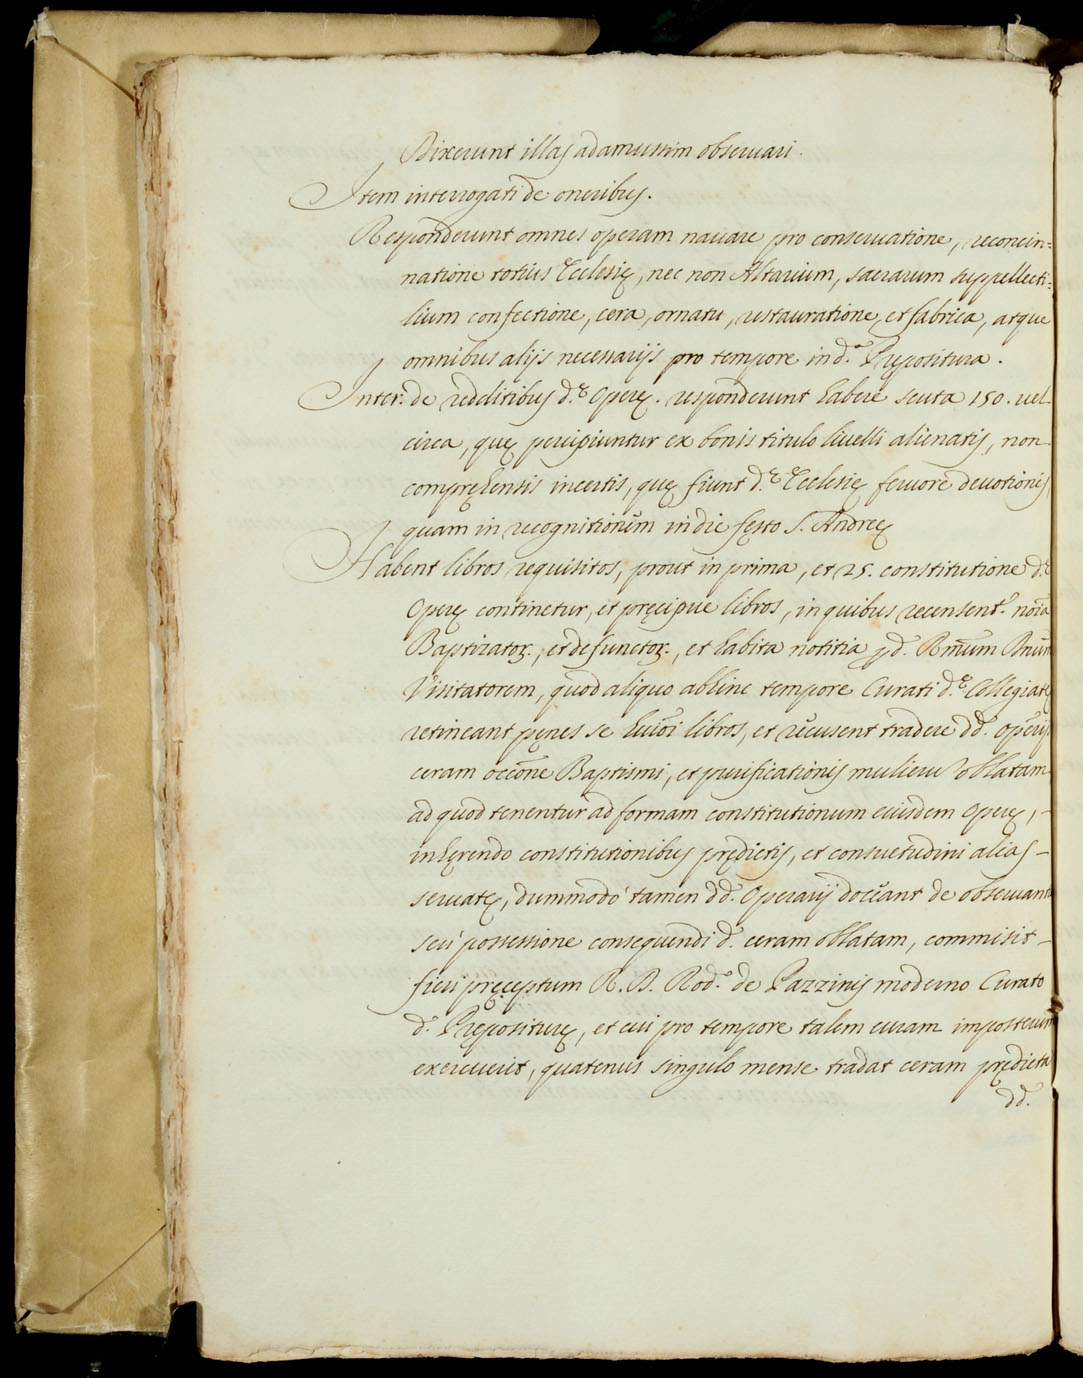 Dixerunt illas adamussim obseruari.
Item interrogati de oneribus.
Responderunt omnes operam nauare pro conseruatione, reconcin=
natione totius Ecclesię, nec non Altarium, sacrarum suppellecti=
lium confectione, cera, ornatu, restauratione, et fabrica, atque
omnibus alijs necessarijs pro tempore in d.ᵃ Prępositura.
Inter: de redditibus d.ę Operę. responderunt habere scuta 150. uel
circa, quę percipiuntur ex bonis titulo liuelli alienatis, non
compręhensis incertis, quę fiunt d.ę Ecclesię feruore deuotionis
quam in recognitionum in die festo S. Andreę
Habent libros requisitos, prout in prima, et 25. constitutione d.ę
Operę continetur, et pręcipue libros, in quibus recensent.ʳ noīa
Baptizatoꝝ, et defunctoꝝ, et habita notitia p d. Rm̄um Dnūm
Visitatorem, quod aliquo abhinc tempore Curati d.ę Collegiatę
retineant pęnes se huiōi libros, et recusent tradere dd. operijs
ceram occōne Baptismi, et purificationis mulieru oblatam
ad quod tenentur ad formam constitutionum eiusdem Operę, -
inhęrendo constitutionibus prędictis, et consuetudini alias -
seruatę, dummodò tamen dd. Operarij doceant de obseruantia
seù possessione consequendi d. ceram oblatam, commisit -
fieri pręceptum R. D. Rod.º de Pazzinis moderno Curato
d.ę Prępositurę, et cui pro tempore talem curam imposterum
exercuerit, quatenus singulo mense tradat ceram prędictā
dd.